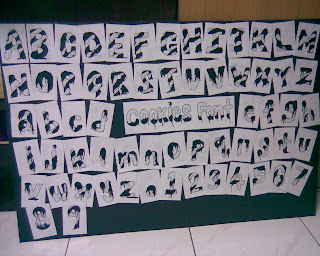 A B C D E F G H I J K L M
N O P Q R S T U V W X Y Z
a b c d Cookies Font e f g h
i j k l m n o p q r s t u
v w x y z 0 1 2 3 4 5 6 7
8 9